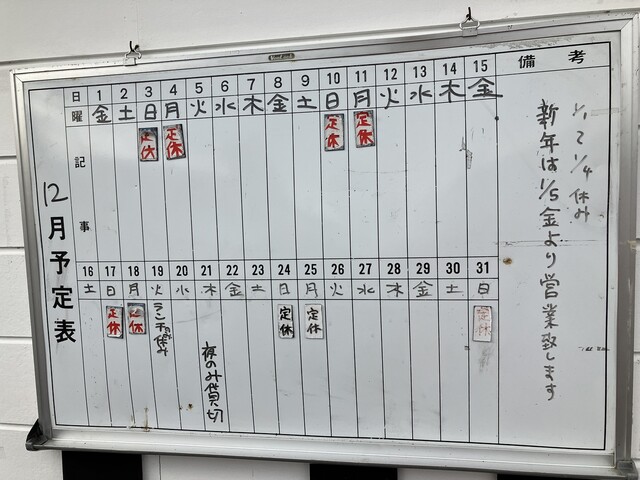 12月予定表
日 1 2 3 4 5 6 7 8 9 10 11 12 13 14 15 備考
曜 金 土 日 月 火 水 木 金 土 日 月 火 水 木 金
記事
定休 定休 定休 定休
16 17 18 19 20 21 22 23 24 25 26 27 28 29 30 31
土 日 月 火 水 木 金 土 日 月 火 水 木 金 土 日
定休 定休 定休 定休 定休
ランチ お休み
夜のみ貸切
1/1 〜 1/4 休み
新年は1/5金より営業致します